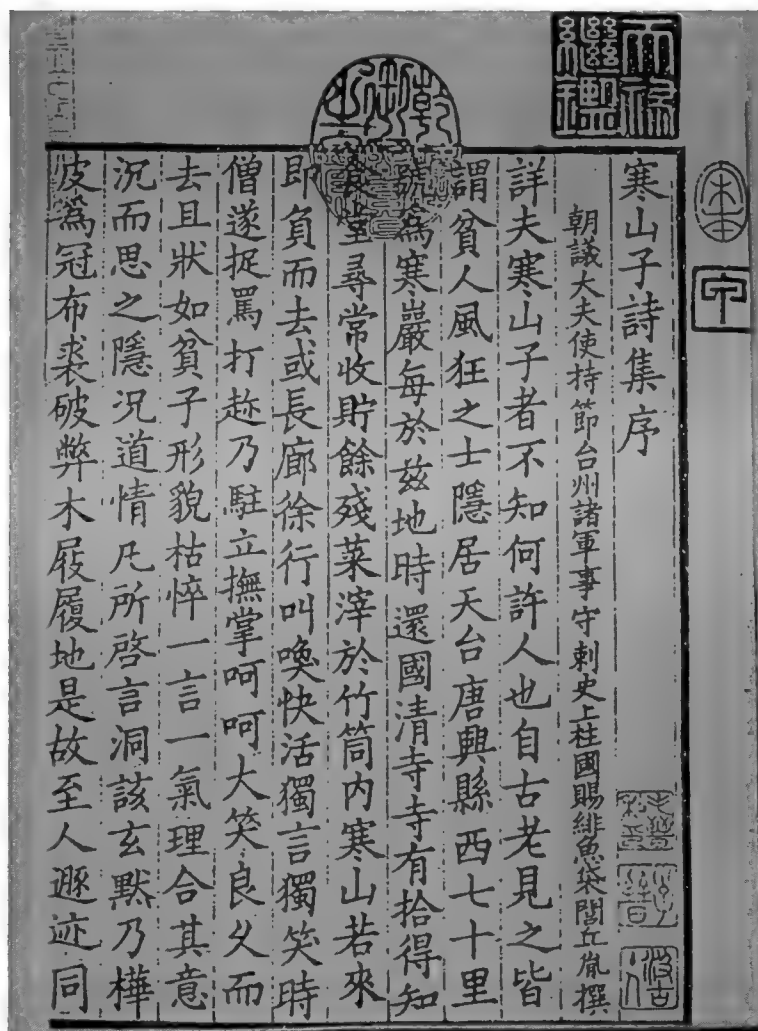 宋本
甲
天祿繼鑑
乾隆御覽之寶
寒山子詩集序
朝議大夫使持節台州諸軍事守刺史上柱國賜緋魚袋閭丘胤撰
詳夫寒山子者不知何許人也自古老見之皆
謂貧人風狂之士隱居天台唐興縣西七十里
號爲寒巖每於茲地時還國清寺寺有拾得知
食堂尋常收貯餘殘菜滓於竹筒内寒山若來
即負而去或長廊徐行叫喚快活獨言獨笑時
僧遂捉罵打趂乃駐立撫掌呵呵大笑良久而
去且狀如貧子形貌枯悴一言一氣理合其意
況而思之隱況道情凡所啓言洞該玄默乃樺
皮爲冠布裘破弊木屐履地是故至人遯迹同